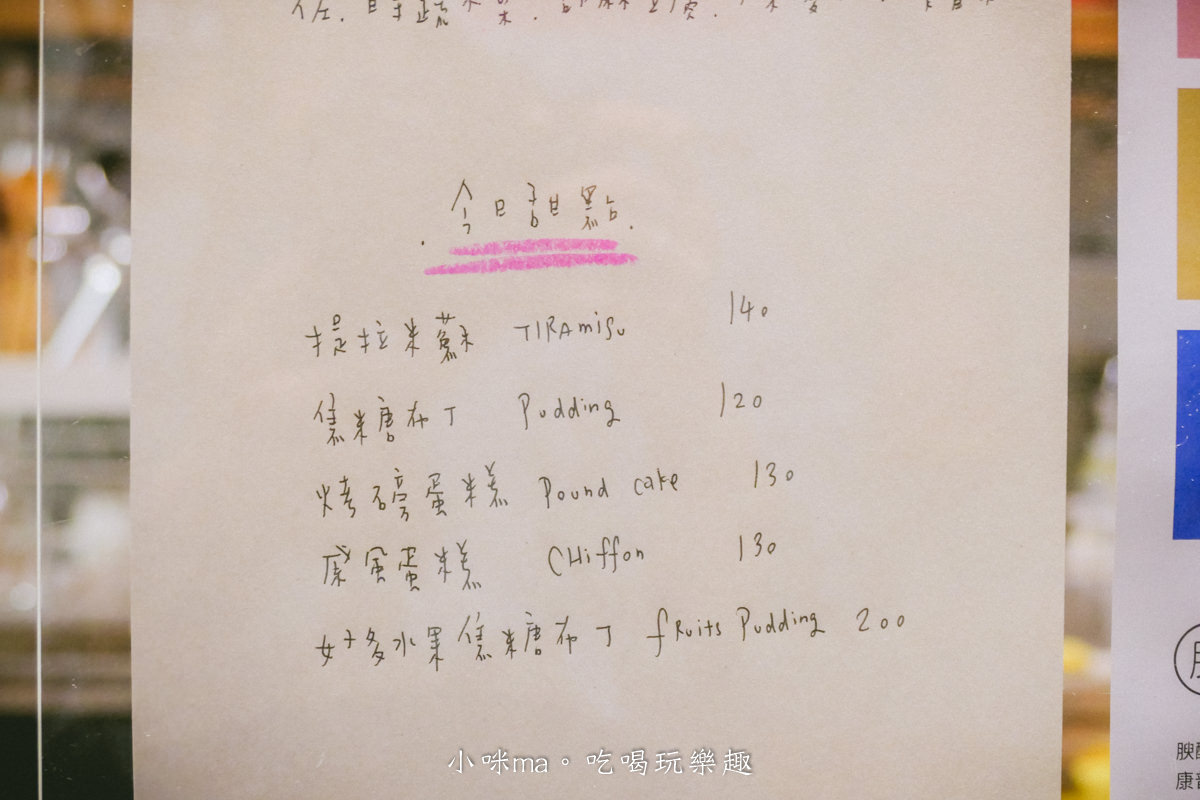 .今日甜點.
提拉米蘇 TIRAmisu 140
焦糖布丁 Pudding 120
烤磅蛋糕 Pound cake 130
戚風蛋糕 CHiffon 130
好多水果焦糖布丁 fRuits Pudding 200
小咪ma。吃喝玩樂趣